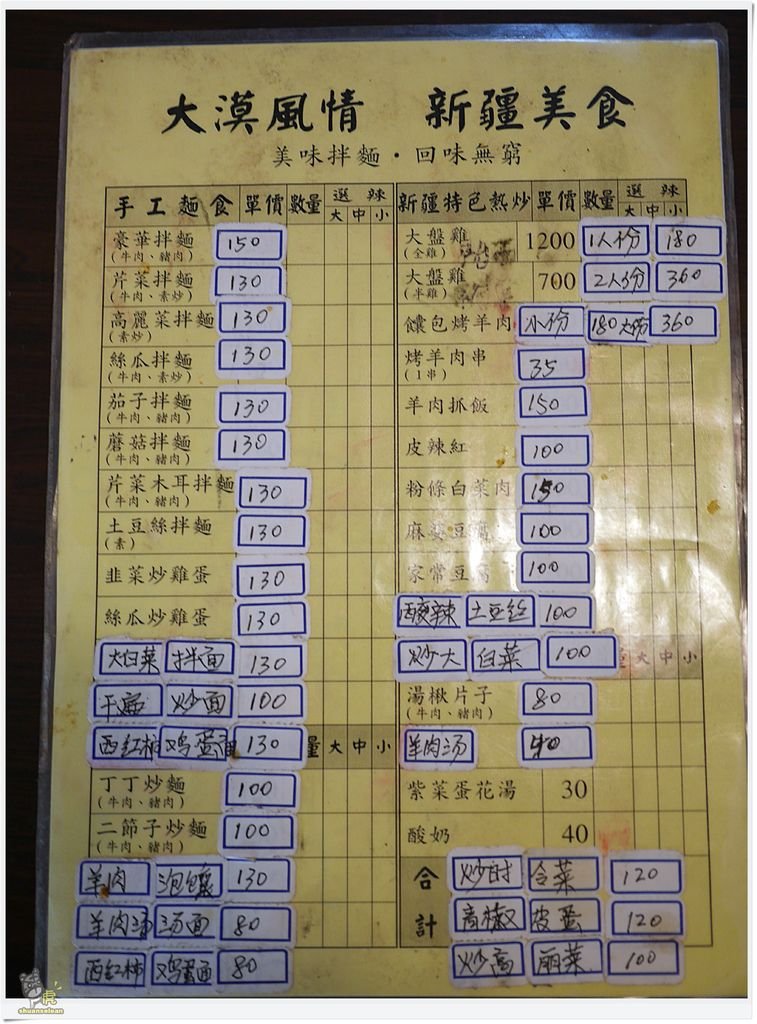 大漠風情 新疆美食
美味拌麵・回味無窮
手工麵食 單價 數量 選 辣 大 中 小
豪華拌麵 150
(牛肉、豬肉)
芹菜拌麵 130
(牛肉、素炒)
高麗菜拌麵 130
(素炒)
絲瓜拌麵 130
(牛肉、素炒)
茄子拌麵 130
(牛肉、豬肉)
蘑菇拌麵 130
(牛肉、豬肉)
芹菜木耳拌麵 130
(牛肉、豬肉)
土豆絲拌麵 130
(素)
韭菜炒雞蛋 130
絲瓜炒雞蛋 130
大白菜 拌面 130
干煸 炒面 100
西红柿 鸡蛋面 130 量 大 中 小
丁丁炒麵 100
(牛肉、豬肉)
二節子炒麵 100
(牛肉、豬肉)
羊肉 泡馕 130
羊肉汤 汤面 80
西红柿 鸡蛋面 80
新疆特色熱炒 單價 數量 選 辣 大 中 小
大盤雞 1200 1人份 180
(全雞)
大盤雞 700 2人份 360
(半雞)
饢包烤羊肉 小份 180 大份 360
烤羊肉串 35
(1串)
羊肉抓飯 150
皮辣紅 100
粉條白菜肉 150
麻婆豆腐 100
家常豆腐 100
酸辣 土豆丝 100
炒大 白菜 100 大 中 小
湯楸片子 80
(牛肉、豬肉)
羊肉汤 40
紫菜蛋花湯 30
酸奶 40
合計
炒时 令菜 120
青椒 皮蛋 120
炒高 丽菜 100
shuanselean